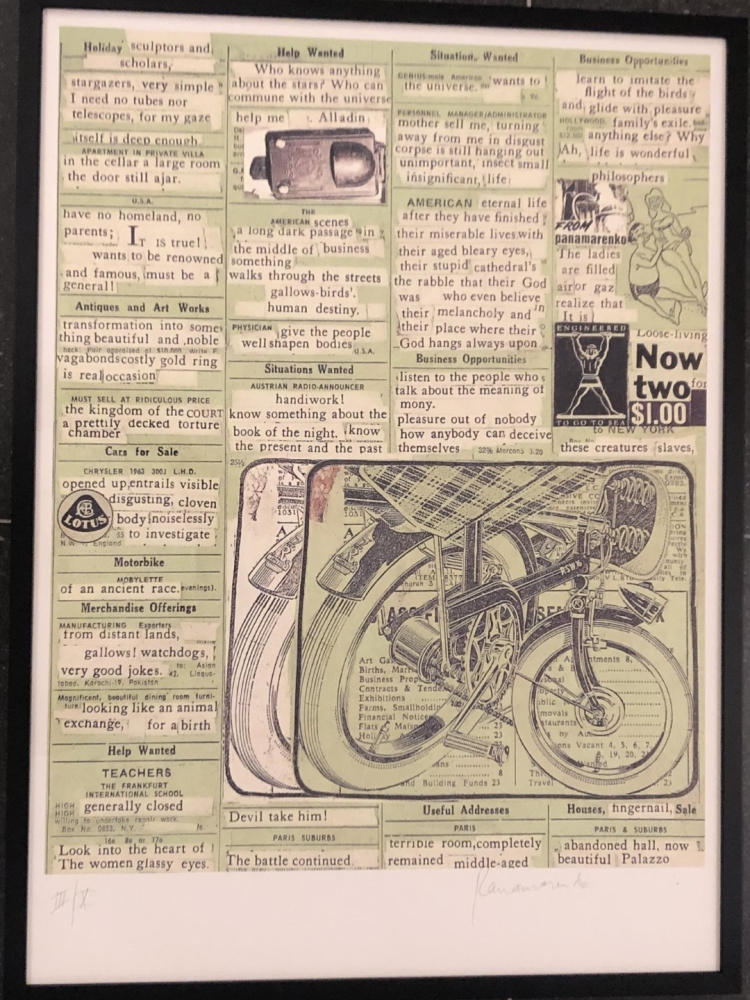 Holiday sculptors and,
scholars,
stargazers, very simple
I need no tubes nor
telescopes, for my gaze
itself is deep enough
APARTMENT IN PRIVATE VILLA
in the cellar a large room
the door still ajar.
U.S.A.
have no homeland, no
parents; IT IS true!
wants to be renowned
and famous, must be a
general!
Antiques and Art Works
transformation into some
thing beautiful and noble
vagabonds costly gold ring
is real occasion
MUST SELL AT RIDICULOUS PRICE
the kingdom of the COURT
a prettily decked torture
chamber
Cars for Sale
CHRYSLER 1963 300J L.H.D.
opened up, entrails visible
disgusting, cloven
LOTUS
body noiselessly
to investigate
England
Motorbike
MOBYLETTE
of an ancient race. evenings).
Merchandise Offerings
MANUFACTURING Exporters
from distant lands,
gallows! watchdogs,
very good jokes. to: Asian
Karachi-19, Pakistan
Magnificent, beautiful dining room furni-
ture. looking like an animal
exchange, for a birth
Help Wanted
TEACHERS
THE FRANKFURT
INTERNATIONAL SCHOOL
HIGH
HIGH generally closed
willing to undertake repair work.
Box No. 0853, N.Y.
Look into the heart of !
The women glassy eyes.
Help Wanted
Who knows anything
about the stars? Who can
commune with the universe
help me . Alladin
THE
AMERICAN scenes
a long dark passage in
the middle of business
something
walks through the streets
gallows-birds'.
human destiny.
PHYSICIAN give the people
well shapen bodies
U.S.A.
Situations Wanted
AUSTRIAN RADIO-ANNOUNCER
handiwork!
know something about the
book of the night. know
the present and the past
Situation Wanted
GENIUS: male American wants to !
the universe.
PERSONNEL MANAGER/ADMINISTRATOR
mother sell me, turning
away from me in disgust
corpse is still hanging out
unimportant, insect small
insignificant, life
AMERICAN eternal life
after they have finished
their miserable lives with
their aged bleary eyes,
their stupid cathedral's
the rabble that their God
was who even believe
their melancholy and
their place where their
God hangs always upon
Business Opportunities
listen to the people who
talk about the meaning of
mony.
pleasure out of nobody
how anybody can deceive
themselves 32% Marcona 3.20
Business Opportunities
learn to imitate the
flight of the birds
and glide with pleasure
HOLLYWOOD family's exile.
anything else? Why
Ah, life is wonderful
philosophers
FROM
panamarenko
The ladies
are filled
air or gaz
realize that
It is
ENGINEERED
TO GO TO SEA
Loose-living
Now
two for
$1.00
to NEW YORK
these creatures slaves,
25½
1031
Art Ga
Births, Marri
Business Prop
Contracts & Tende
Exhibitions
Farms, Smallholdin
Financial Notice
Flats & Mais
Holiday
and Building Funds 23
ons Vacant 4, 5, 6, 7,
19, 20,
Travel 23
Devil take him!
PARIS SUBURBS
The battle continued
Useful Addresses
PARIS
terrible room, completely
remained middle-aged
Houses, fingernail, Sale
PARIS & SUBURBS
abandoned hall, now
beautiful Palazzo
III/X
Panamarenko